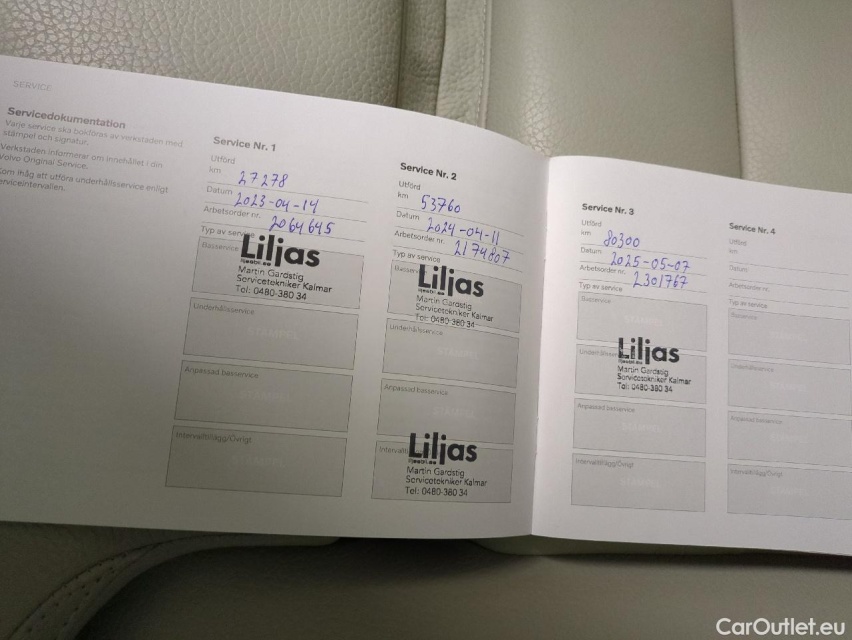 SERVICE
Servicedokumentation
Varje service ska bokföras av verkstaden med
stämpel och signatur.
Verkstaden informerar om innehållet i din
Volvo Original Service.
Kom ihåg att utföra underhållsservice enligt
serviceintervallen.
Service Nr. 1
Utförd
km 27278
Datum 2023-04-14
Arbetsorder nr. 2064645
Typ av service
Basservice
Liljas
Martin Gardstig
Servicetekniker Kalmar
Tel: 0480-380 34
Underhållsservice
Anpassad basservice
Intervalltillägg/Övrigt
Service Nr. 2
Utförd
km 53760
Datum 2024-04-11
Arbetsorder nr. 2174807
Typ av service
Liljas
Martin Gardstig
Servicetekniker Kalmar
Tel: 0480-380 34
Underhållsservice
Anpassad basservice
Liljas
Martin Gardstig
Servicetekniker Kalmar
Tel: 0480-380 34
Service Nr. 3
Utförd
km 80300
Datum 2025-05-07
Arbetsorder nr. 2301767
Typ av service
Basservice
Liljas
Martin Gardstig
Servicetekniker Kalmar
Tel: 0480-380 34
Anpassad basservice
Intervalltillägg/Övrigt
Service Nr. 4
Utförd
km
Datum
Arbetsorder nr.
Typ av service
Basservice
Underhållsservice
Anpassad basservice
Intervalltillägg/Övrigt
CarOutlet.eu